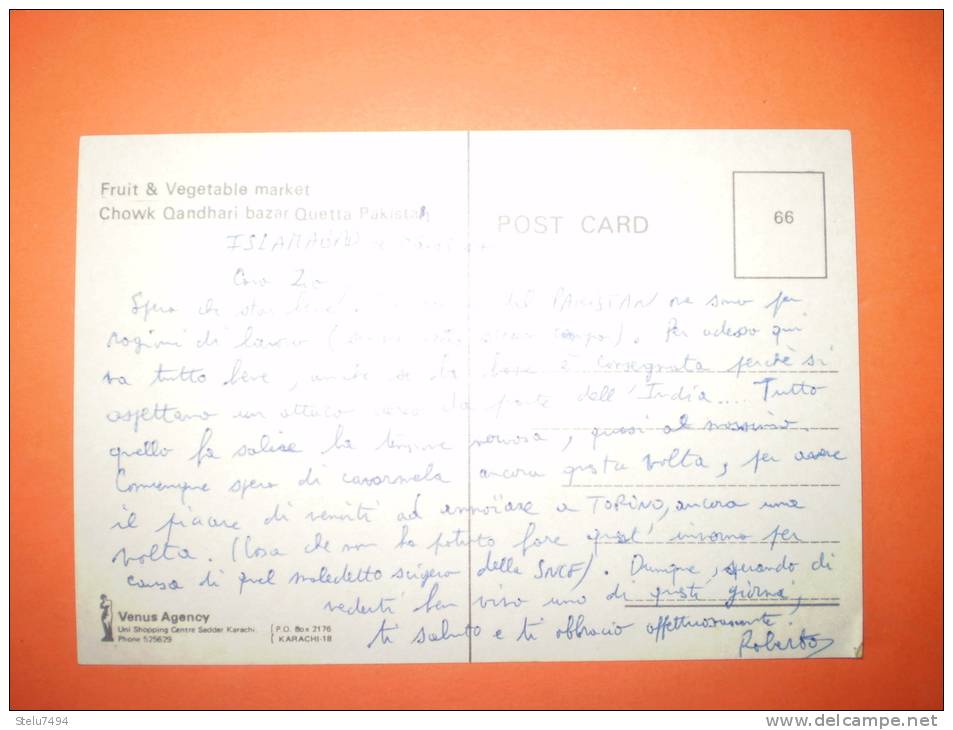 Fruit & Vegetable market
Chowk Qandhari bazar Quetta Pakistan
POST CARD
66
ISLAMABAD
Caro Zio
Spero che stai bene. del PAKISTAN ne sono per
ragioni di lavoro ( ). Per adesso qui
va tutto bene, anche se la base è consegnata perchè si
aspettano un attacco aereo da parte dell'India.... Tutto
quello fa salire la tensione nervosa, quasi al massimo.
Comunque spero di cavarmela ancora questa volta, per avere
il piacere di venirti ad annoïare a TORINO, ancora una
volta. (Cosa che non ho potuto fare quest' inverno per
causa di quel maledetto sciopero della SNCF). Dunque, sperando di
vederti ben vivo uno di questi giorni,
ti saluto e ti abbraccio affettuosamente.
Roberto
Venus Agency
Uni Shopping Centre Sadder Karachi.
Phone 525629
P.O. Box 2176
KARACHI-18
Stelu7494
www.delcampe.net